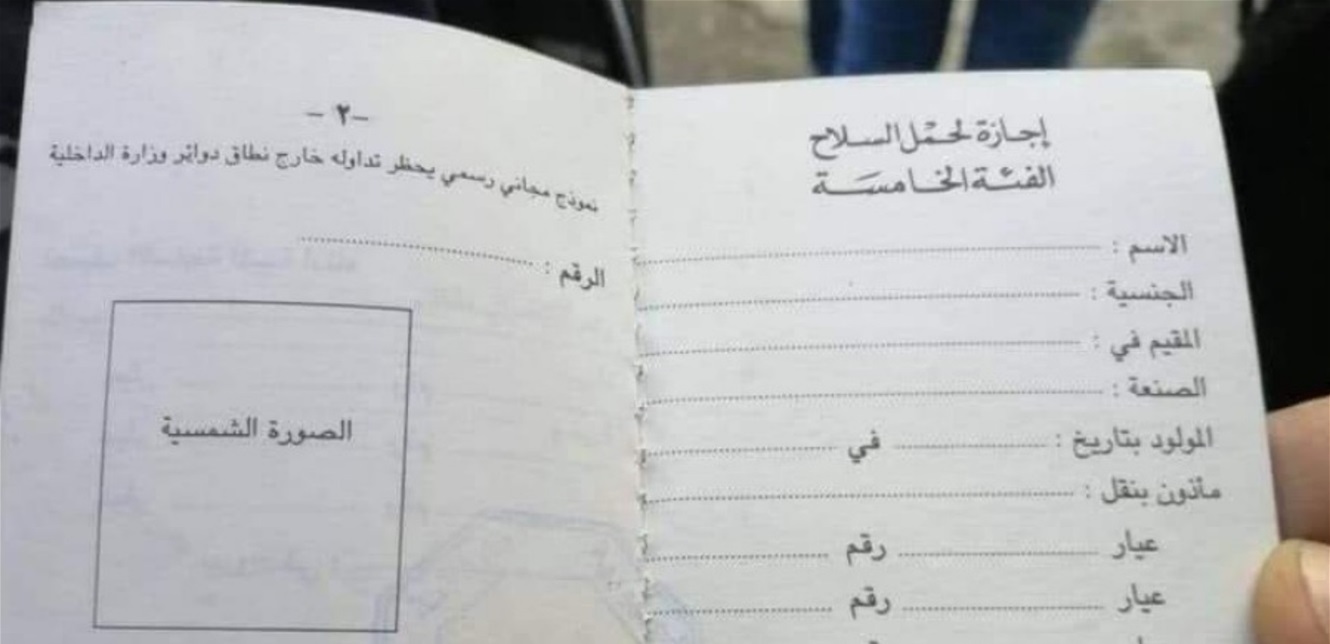 إجازة لحمل السلاح
الفئة الخامسة
الاسم :
الجنسية :
المقيم في :
الصنعة :
المولود بتاريخ : في
مأذون بنقل :
عيار رقم
عيار رقم
-٢-
نموذج مجاني رسمي يحظر تداوله خارج نطاق دوائر وزارة الداخلية
الرقم :
الصورة الشمسية